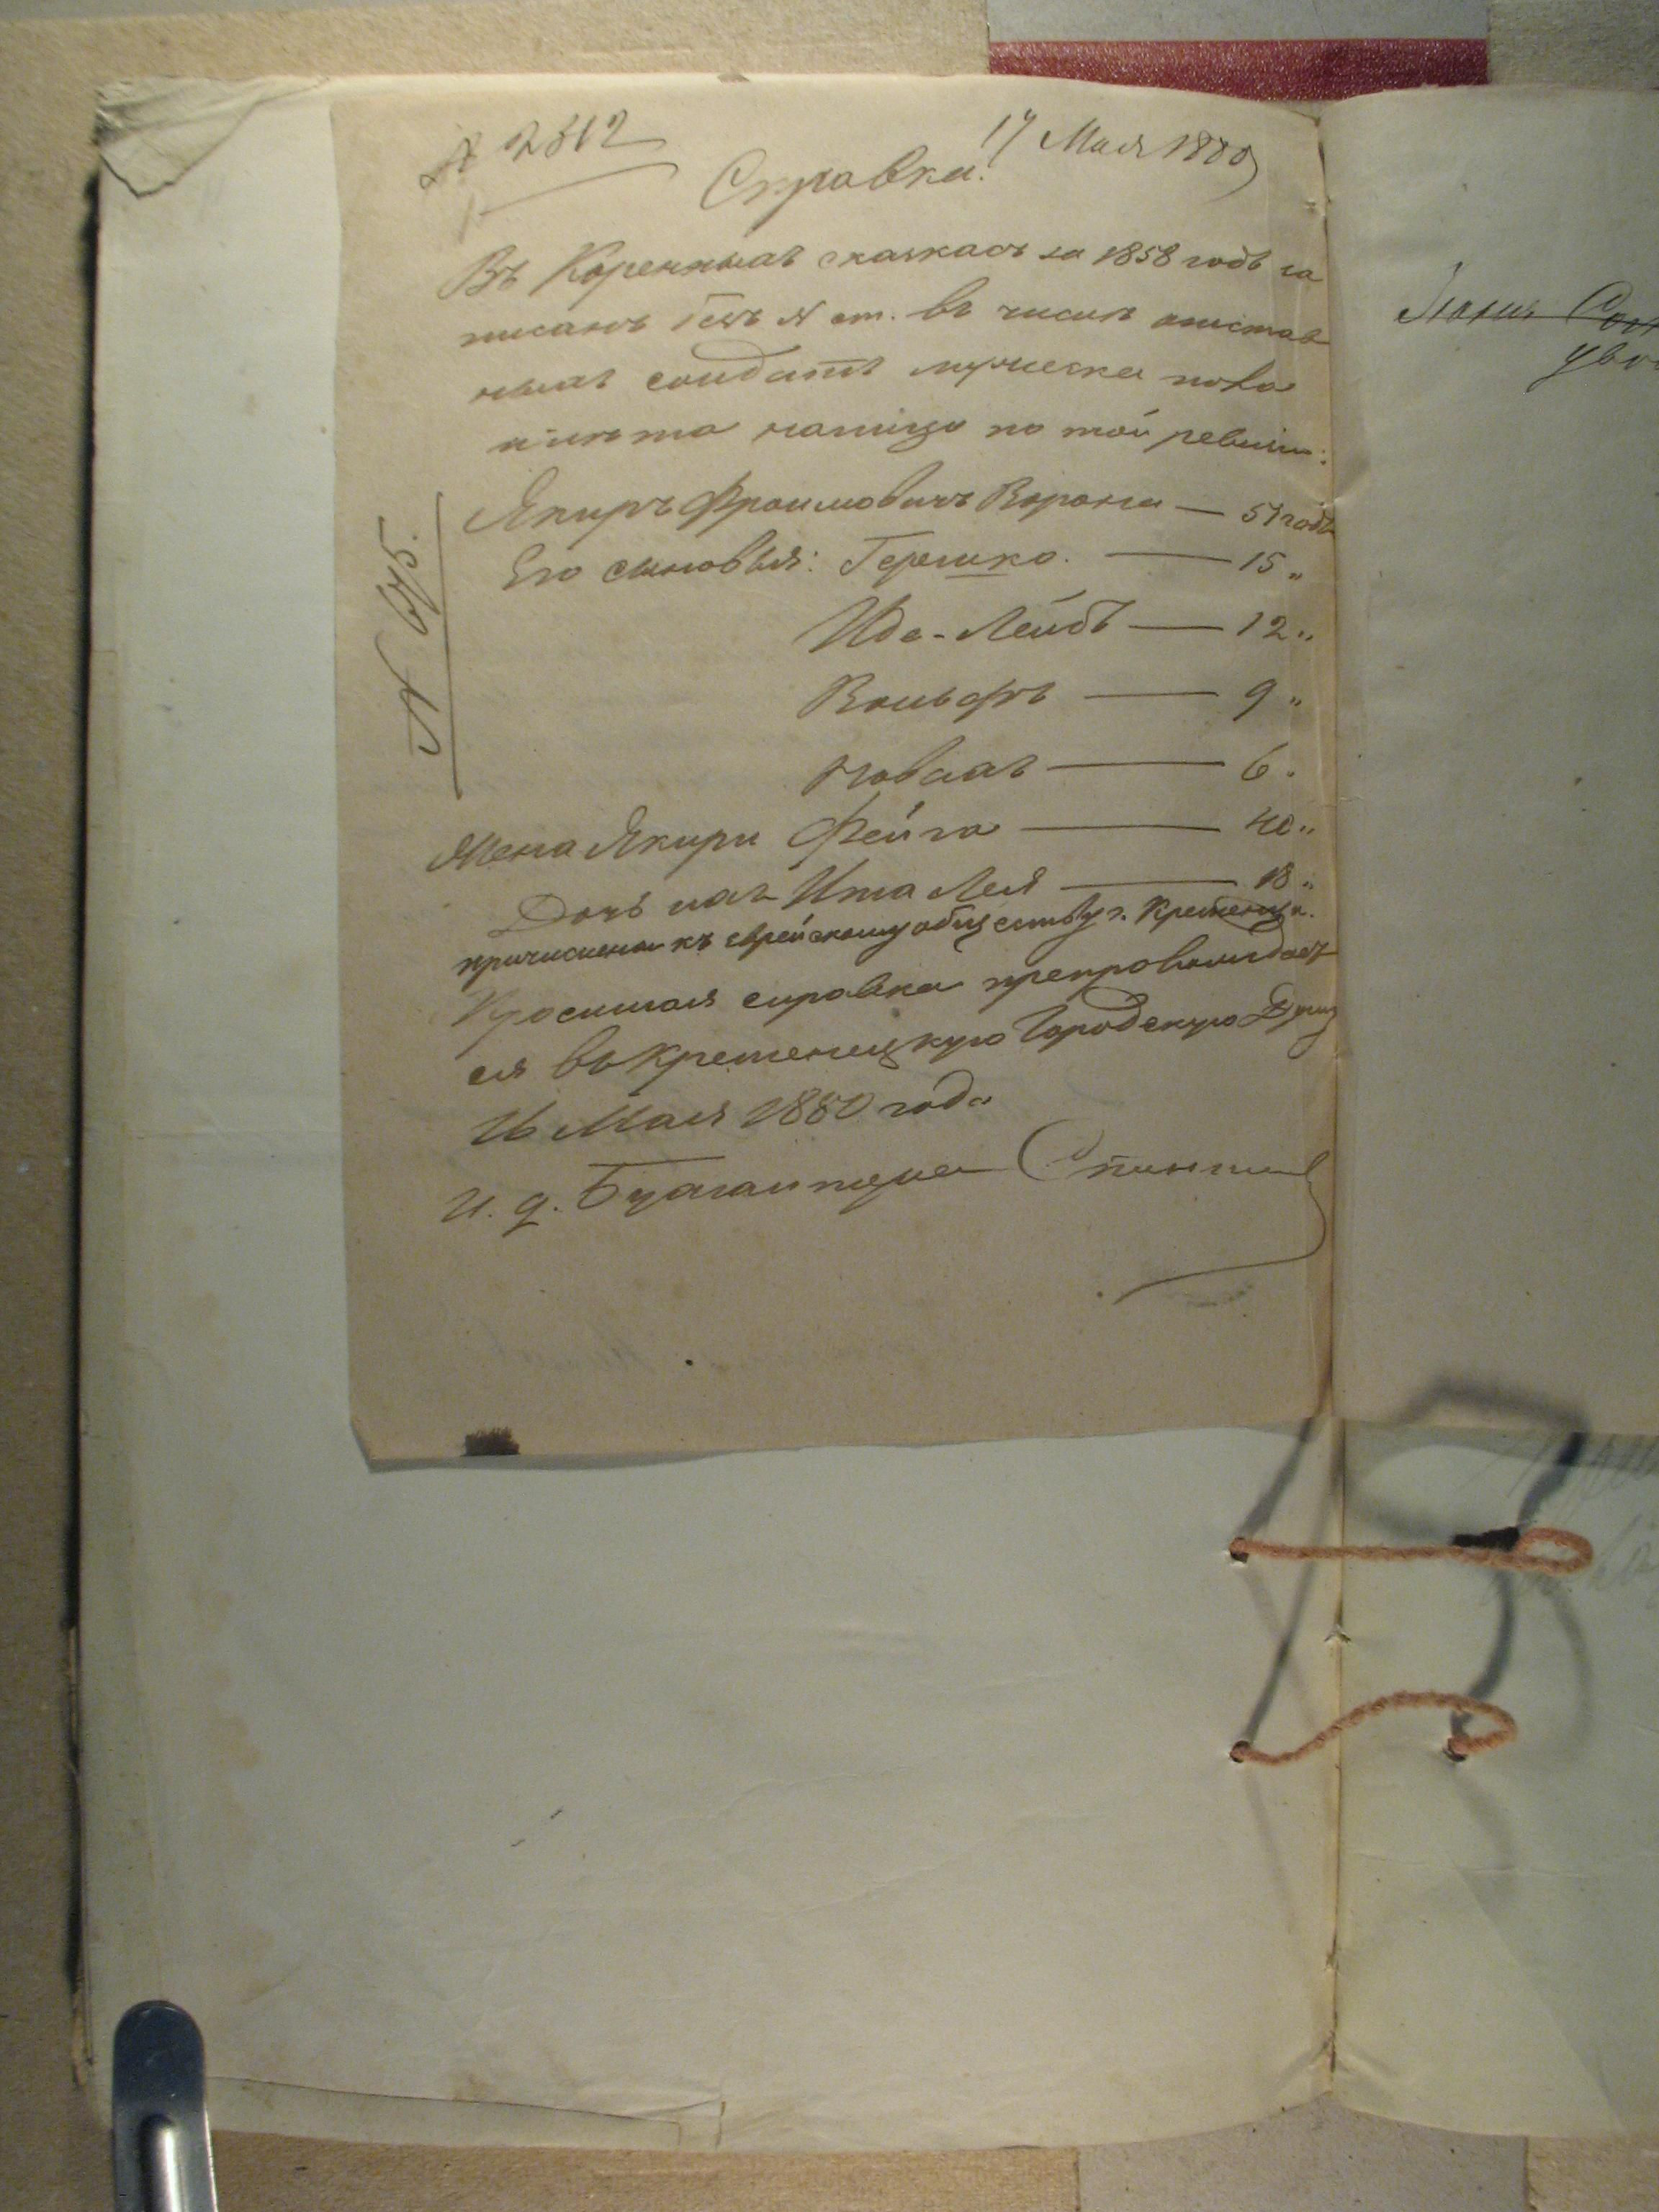 № 2512
17 Мая 1880
Справка.
Въ Коренныхъ сказкахъ за 1858 годъ за
писанъ № ст. въ числѣ отстав
ныхъ солдатъ мужеска поко
лѣнія налицо по той ревизіи:
Якиръ Фроимовичъ Ворона — 51 годъ
Его сыновья: Гершко. — 15 "
Идо-Лейбъ — 12 "
Вольфъ — 9 "
— 6 "
Жена Якира Фейга — 40 "
Дочь ихъ Ита Лея — 18 "
причислены къ еврейскому обществу г. Кременца.
Просимая справка препровождает
ся въ Кременецкую Городскую Думу
16 Мая 1880 года
И. д. Бухгалтера
№ 675.